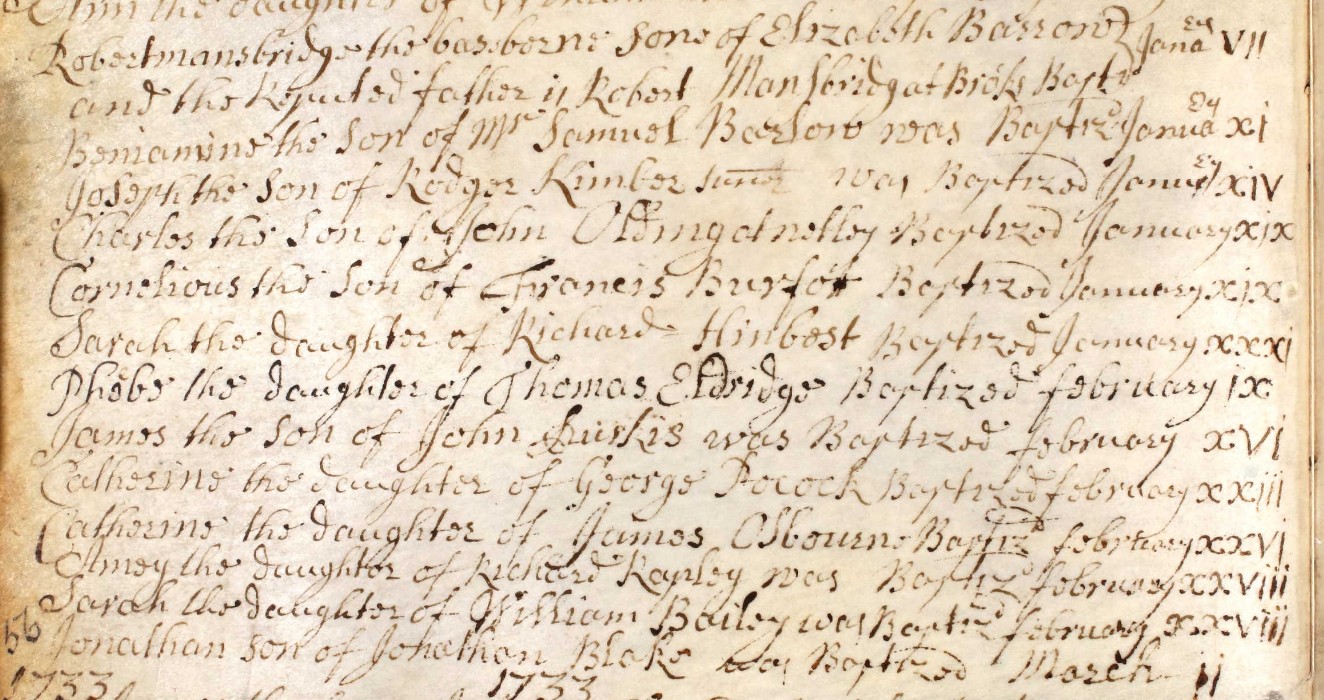 Ann the daughter of William
Robertmansbridge the baseborne Sone of Elizabeth Barrow Janua ry VII
and the Reputed father is Robert Mansbridg at Broks Baptz
Beniamine the Son of Mr Samuel Barlow was Baptizd Janua ry XI
Joseph the Son of Rodger Kimber was Baptized Janua ry XIV
Charles the Son of John Olding at netley Baptized January XIX
Cornelious the Son of Francis Burfot Baptized January XIX
Sarah the daughter of Richard Hinbest Baptized January XXXI
Phebe the daughter of Thomas Eldridge Baptized february IX
James the Son of John was Baptized february XVI
Catherine the daughter of George Pocock Baptized february XXIII
Catherine the daughter of James Osbourne Baptizd february XXVI
Amey the daughter of Richard Rapley was Baptizd february XXVIII
Sarah the daughter of William Bailey was Baptizd february XXVIII
56 Jonathan Son of Jonathan Blake was Baptized March II
1733 1733